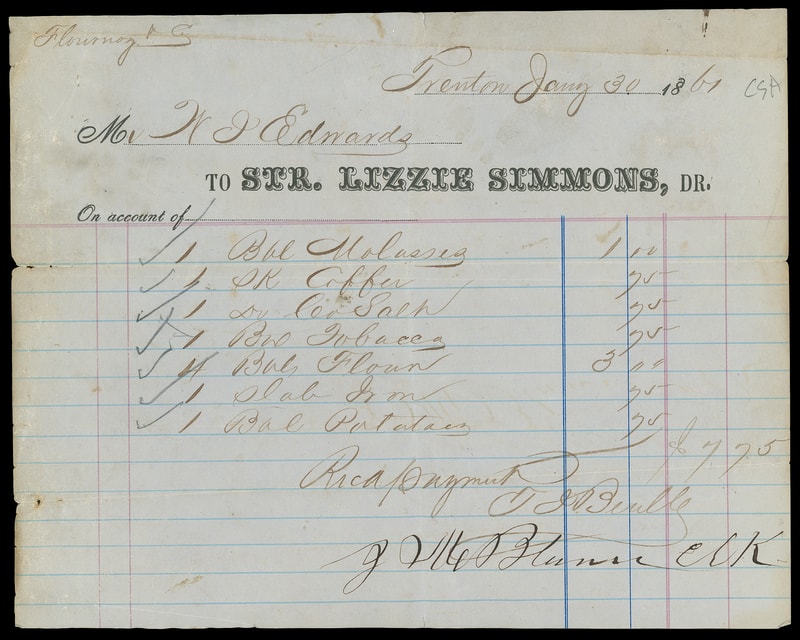 Flournoy & Co
Trenton Jany 30 1861 CSA
Mr W J Edwards
TO STR. LIZZIE SIMMONS, DR.
On account of
1 Bbl Molasses 1 00
1 SK Coffee 75
1 Do Co Salt 75
1 Box Tobacco 75
4 Bbls Flour 3 00
1 Slab Iron 75
1 Bbl Potatoes 75
$ 7.75
Recd payment
T J
J M Clk